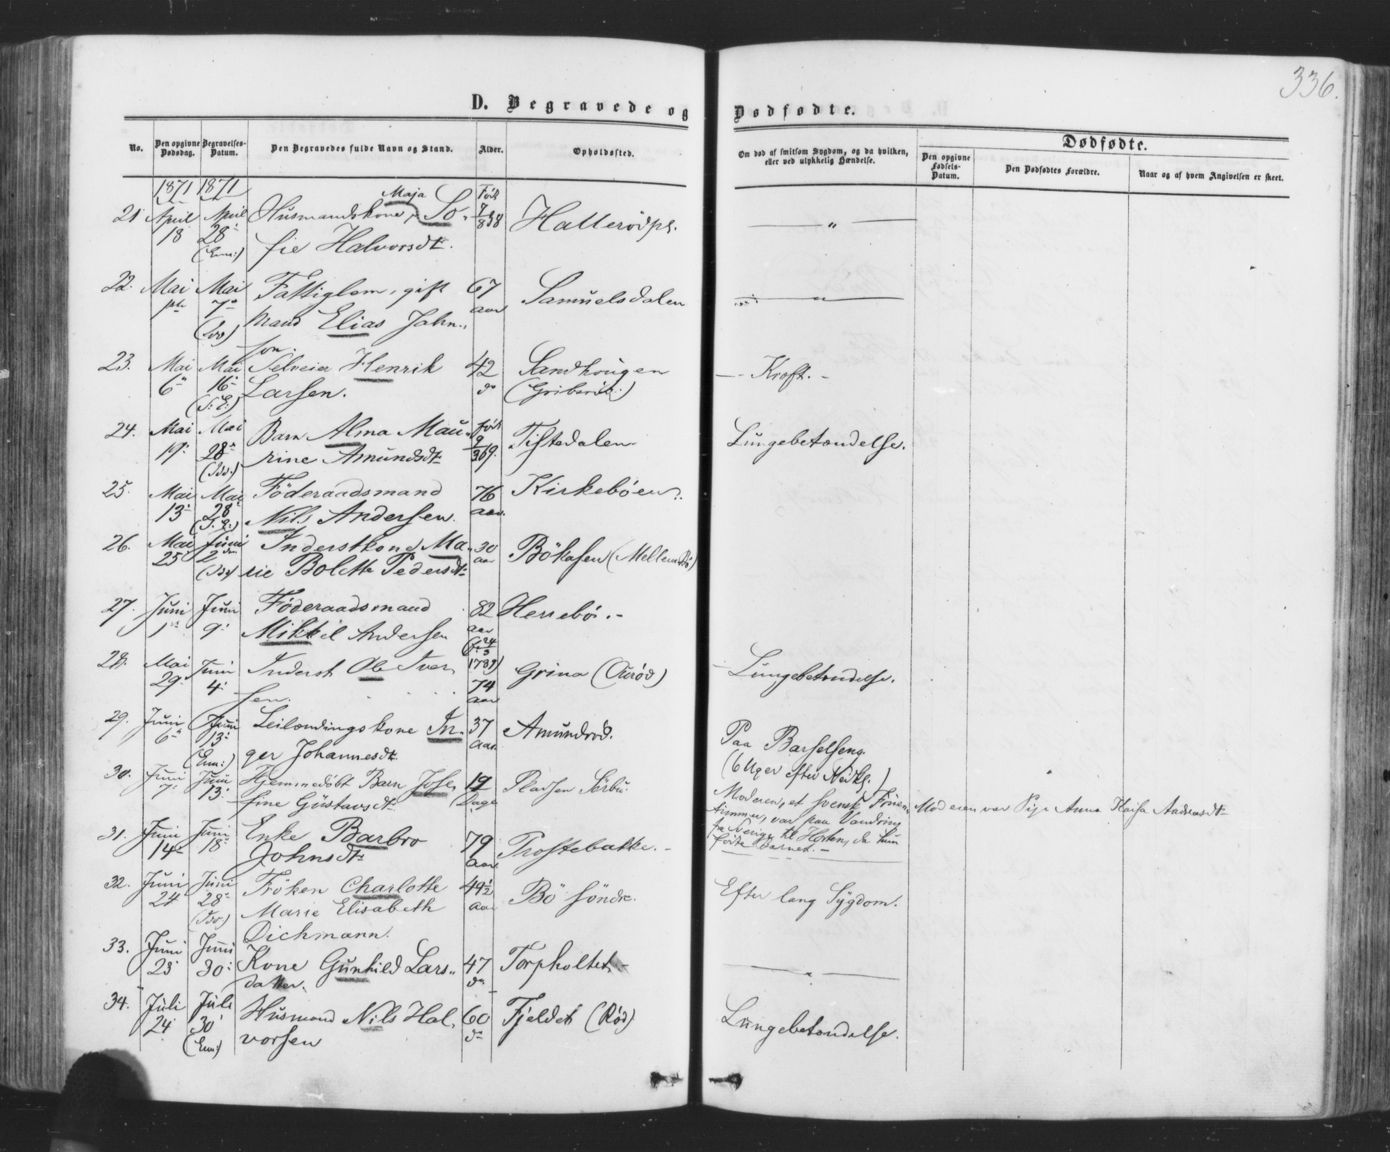 336.
D. Begravede og Dødfødte.
No.
Den opgivne Dødsdag.
Begravelses-Datum.
Den Begravedes fulde Navn og Stand.
Alder.
Opholdssted.
Om død af smitsom Sygdom, og da hvilken, eller ved ulykkelig Hændelse.
Dødfødte.
Den opgivne Fødsels-Datum.
Den Dødfødtes Forældre.
Naar og af hvem Angivelsen er skeet.
1871 1871
21 April 18 April 28 (Enn:) Husmandskone, Maja So-
fie Halvorsdt. Født 7/8 38 Hallerødpl. "
22. Mai Mai 7 Fattiglem, gift
Mand Elias John-
son 67 aar Samuelsdalen "
23. Mai 6 Mai 16 Selveier Henrik
Larsen. 42 do Sandhougen
Kræft.
24. Mai 19 Mai 28 Barn Alma Mau-
rine Amundsdt. født 9/3 69. Tistedalen Lungebetændelse.
25. Mai 13 Mai 28 Föderaadsmand
Nils Andersen. 76 aar. Kirkebøen.
26. Mai 25 Juni 2 Inderstkone Ma-
rie Bolette Pedersdt. 30 aar Bökasen
27. Juni 1 Juni 9 Föderaadsmand
Mikkel Andersen 82 aar (f. 24/3 1789) Herrebø.
28. Mai 29 Juni 4 Inderst Ole Iver-
sen. 74 aar Grina Lungebetændelse.
29. Juni 6 Juni 13 (Enn:) Leilændingskone In-
ger Johannesdt. 37 aar Amundrød. Paa Barselseng.
(6 Uger efter Nedk.)
30. Juni 7 Juni 13 Hjemmedøbt Barn Jose-
fine Gustavsdt. 19 Dage Pladsen Sörbü
Moderen, et svensk Fruen-
timmer, var paa Vandring
fra Sverige til Horten, da hun
fødte Barnet.
Moderen var Pige Anna Andreasdt.
31. Juni 14 Juni 18 Enke Barbro
Johnsdt. 79 aar Trostebakke.
32. Juni 24 Juni 28 Fröken Charlotte
Marie Elisabeth
Dichmann. 49½ aar Bö söndre. Efter lang Sÿgdom.
33. Juni 23 Juni 30 Kone Gunhild Lars-
datter. 47 do Torpholtet "
34. Juli 24 Juli 30 (Enn:) Husmand Nils Hal-
vorsen 60 do Fjeldet (Rød) Lungebetændelse.